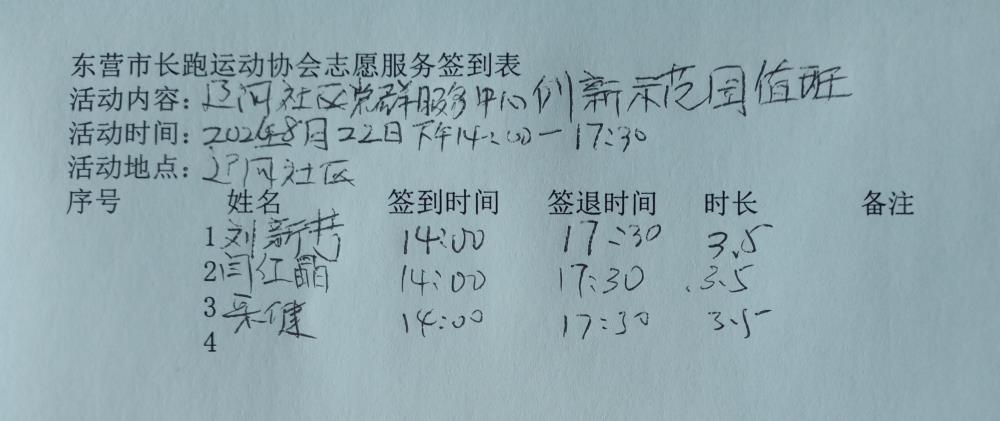 东营市长跑运动协会志愿服务签到表
活动内容：辽河社区党群服务中心创新示范园值班
活动时间：2026年8月22日下午14:00—17:30
活动地点：辽河社区
序号 姓名 签到时间 签退时间 时长 备注
1 刘新 14:00 17:30 3.5
2 闫红晶 14:00 17:30 3.5
3 健 14:00 17:30 3.5
4